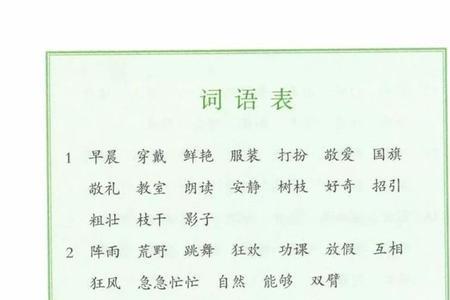 词语表
1 早晨 穿戴 鲜艳 服装 打扮 敬爱 国旗
敬礼 教室 朗读 安静 树枝 好奇 招引
粗壮 枝干 影子
2 阵雨 荒野 跳舞 狂欢 功课 放假 互相
狂风 急急忙忙 自然 能够 双臂